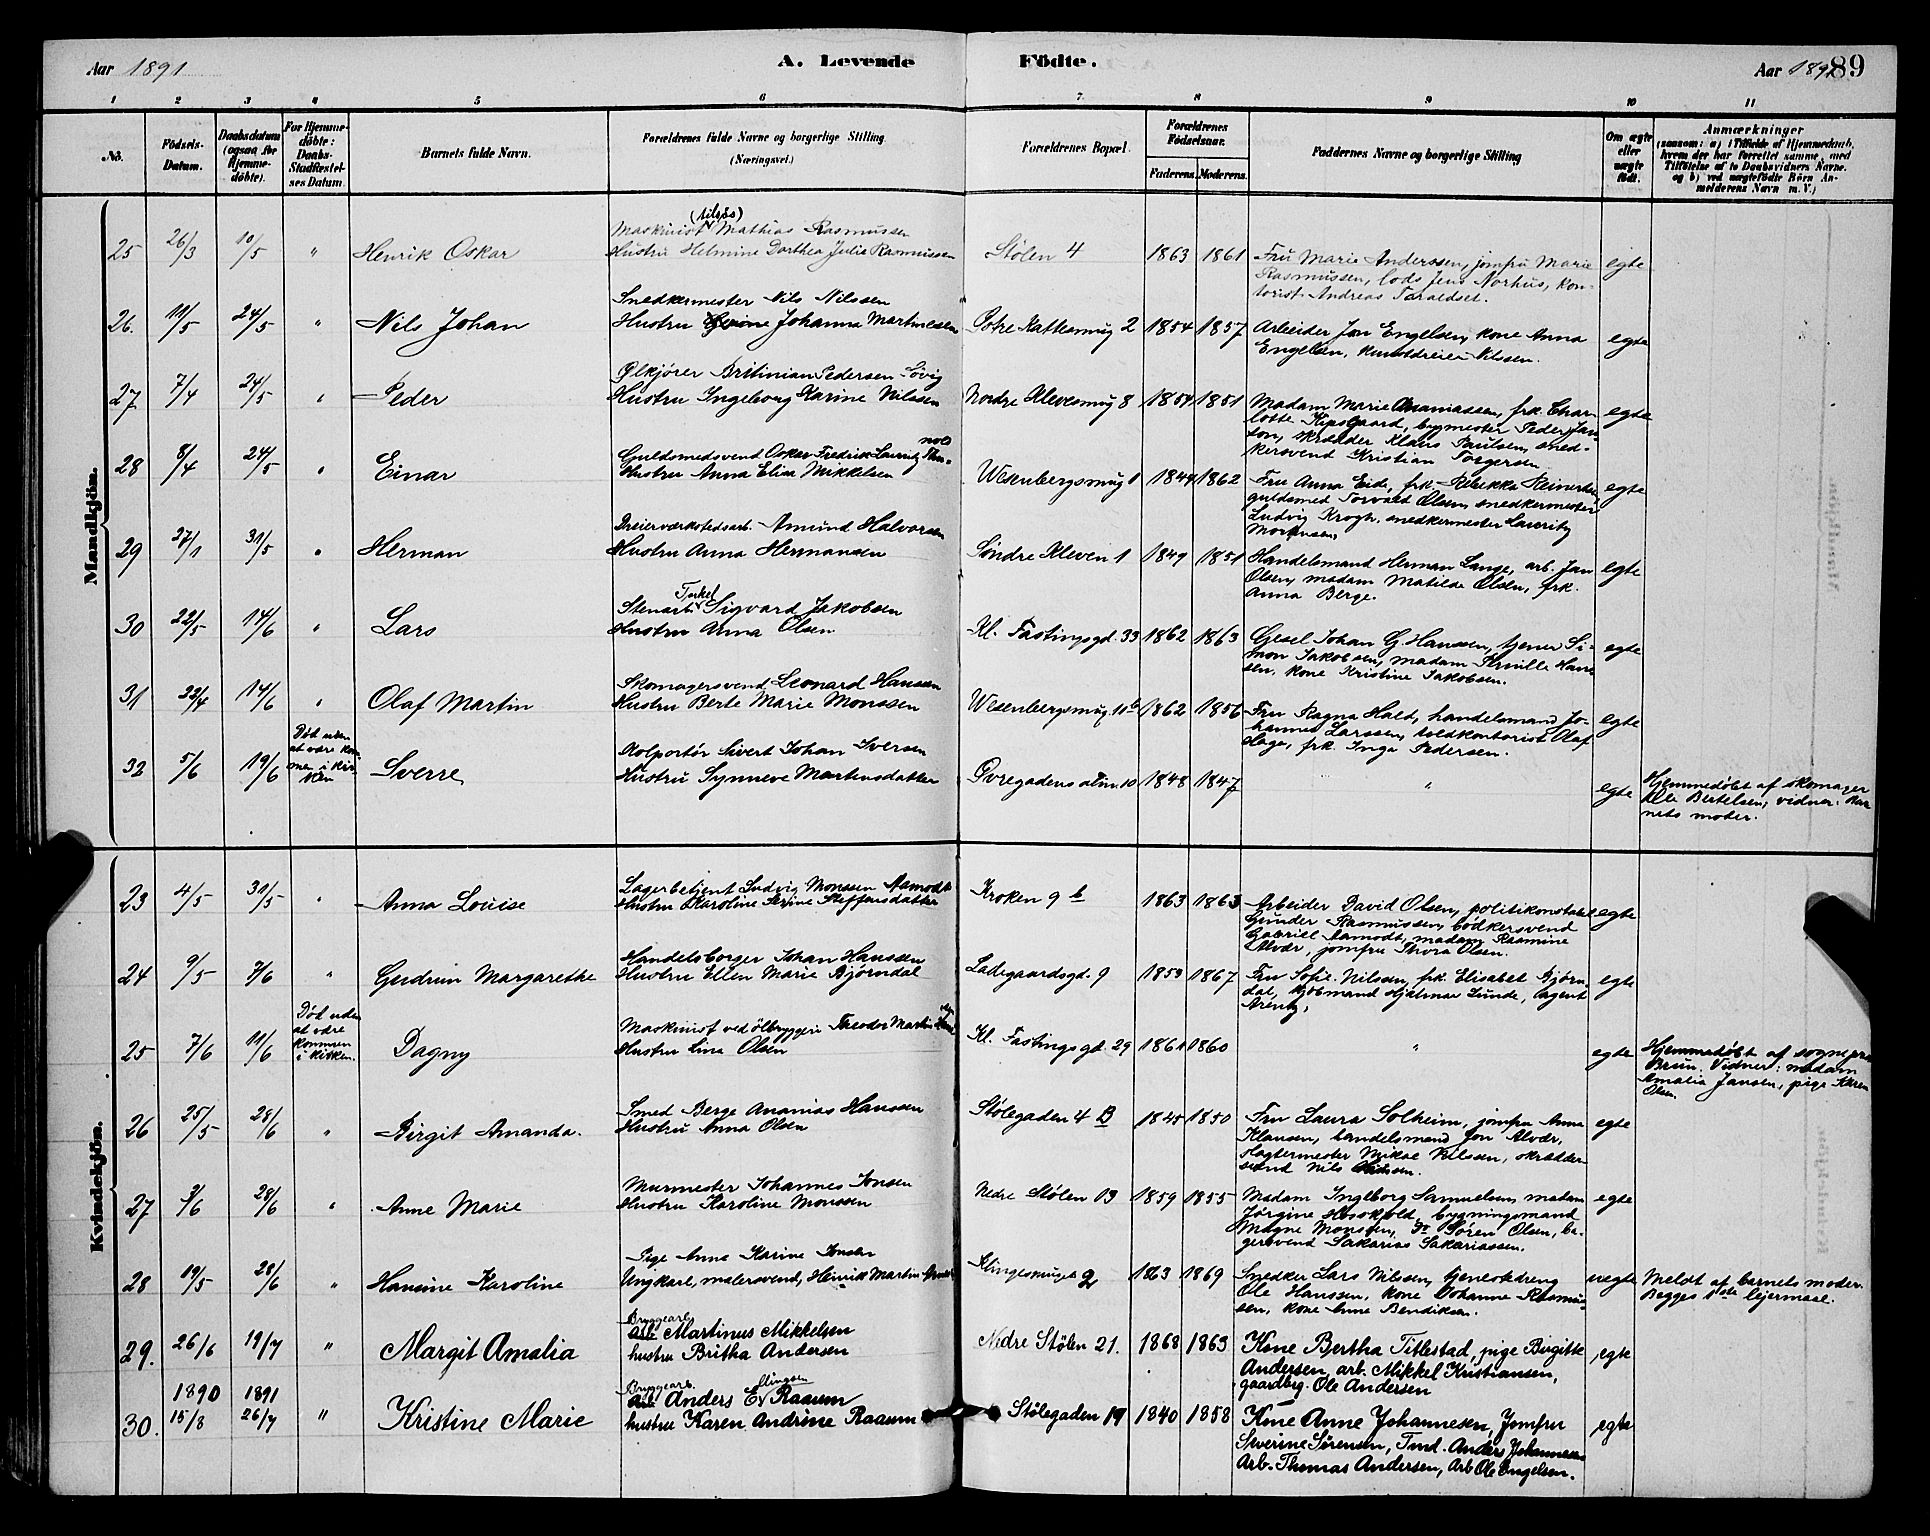 Aar 1891
A. Levende
Födte.
Aar 1891
89
1 2 3 4 5 6 7. 8 9 10 11
No.
Födsels-Datum.
Daabsdatum (ogsaa for Hjemme-döbte).
For Hjemme-döbte: Daabs-Stadfæstel-ses Datum.
Barnets fulde Navn.
Forældrenes fulde Navne og borgerlige Stilling.
(Næringsvei.)
Forældrenes Bopæl.
Forældrenes Födselsaar.
Faderens. Moderens.
Faddernes Navne og borgerlige Stilling
Om ægte eller uægte födt.
Anmærkninger
(saasom: a) i Tilfælde af Hjemmedaab,
hvem der har forrettet samme, med
Tilföielse af to Daabsvidners Navne.
og b) ved uægtefödte Börn An-
melderens Navn m. V.)
Mandkjön.
25 26/3 10/5 " Henrik Oskar
Maskinist Mathias Rasmussen
Hustru Helmine Dorthea Julie Rasmussen
Stølen 4 1863 1861
Fru Marie Anderssen, jomfru Marie
Rasmussen, lods Jens Norhus, kon-
torist Andreas Taraldset.
egte
26. 11/5 24/5 " Nils Johan
Snedkermester Nils Nilssen
Hustru Johanna Martinessen
2 1854 1857
Arbeider Jon Engelsen, kone Anna
Engelsen, Nilssen.
egte
27 7/4 24/5 " Peder
Ølkjører Pedersen Søvig
Hustru Ingeborg Karine Nilssen
Nordre Klevesmug 8 1854 1851
Madam Marie Ananiassen, frk. Char-
lotte bymester Peder Jan-
son, skrædder Klaus Paulsen, sned-
kersvend Kristian Torgersen
egte
28 8/4 24/5 " Einar
Guldsmedsvend Oskar Fredrik Lauritz
Hustru Anna Elise Mikkelsen
Wesenbergsmug 1 1844 1862
Fru Anna Eide, frk. Rebekka
guldsmed Torvald Olsen, snedkermester
Ludvig Krogh, snedkermester Lauritz
Mortensen,
egte
29 27/1 31/5 " Herman
Dreierværkstedsarb. Amund Halvorsen
Hustru Anna Hermansen
Søndre Kleven 1 1849 1851
Handelsmand Herman Lange, arb. Jan
Olsen, madam Matilde Olsen, frk.
Anna Berge.
egte
30 22/5 14/6 " Lars
Torkel
Stenarb. Sigvard Jakobsen
Hustru Anna Olsen
Kl. Fastingsgd. 33 1862 1863
Gesel Johan G. Hanssen, tjener Si-
mon Jakobsen, madam Hans-
sen, kone Kristine Jakobsen.
egte
31 22/4 14/6 " Olaf Martin
Skomagersvend Leonard Hanssen
Hustru Berte Marie Monssen
Wesenbergsmug. 1862 1856
Fru Ragna Hald, handelsmand Jo-
hannes Larssen, toldkontorist Olaf
frk. Inga Pedersen.
egte
32 5/6 19/6
Død uden
at være kom
men i kir
ken
Sverre
Kolportør Sivert Johan Iversen
Hustru Synneve Martinsdatter
Øvregadens alm. 10 1848 1847 "
egte
Hjemmedøbt af skomager
Bertelsen, vidner: Bar
nets moder.
Kvindekjön.
23 4/5 31/5 " Anna Louise
Lagerbetjent Ludvig Monssen Aamodt
Hustru Karoline Serine Steffensdatter
Kroken 9 b 1863 1863
Arbeider David Olsen, politikonstabel
Gunder Rasmussen, bødkersvend
Gabriel Aamodt, madam Rasmine
Alvær, jomfru Thora Olsen.
egte
24 9/5 7/6 " Gudrun Margarethe
Handelsborger Johan Hanssen
Hustru Ellen Marie Bjørndal
Ladegaardsgd. 9 1859 1867
Fru Sofie Nilssen, frk. Elisabet Bjørn-
dal, Kjøbmand Hjalmar Lunde, agent
Arentz,
egte
25 7/6 11/6
Død uden
at være
kommen
i kirken.
Dagny
Maskinist ved ølbryggeri Theodor Martin
Hustru Lina Olsen
Kl. Fastingsgd. 29 1861 1860 "
egte
Hjemmedøbt af sognepr.
Brun. Vidner: madam
Amalia Jansen, pige Karen
Olsen.
26 25/5 28/6 " Birgit Amanda.
Smed Berge Ananias Hanssen
Hustru Anna Olsen
Stølegaden 4 B 1845 1850
Fru Laura Solheim, jomfru Anna
Klausen, handelsmand Jon Alvær,
slagtermester Mikal Nilssen, skrædder-
svend Nils
egte
27 3/6 28/6 " Anne Marie
Murmester Johannes Jonsen
Hustru Karoline Monssen
Nedre Stølen 13 1859 1855
Madam Ingeborg Samuelsen, madam
Jørgine bygningsmand
Magne Monssen, Do Søren Olsen, ba-
gersvend Sakarias Sakariassen.
egte
28 19/5 28/6 " Hansine Karoline
Pige Anna Karine Jonsen
Ungkarl, malersvend, Henrik Martin
2 1863 1869
Snedker Lars Nilssen, tjenestedreng
Ole Hanssen, kone Johanne Rasmus-
sen, kone Anne Bendiksen.
uegte
Meldt af barnets moder.
Begges 1ste leiermaal.
29. 26/6 19/7 " Margit Amalia
Bryggearb.
Arb. Martinus Mikkelsen
hustru Britha Andersen
Nedre Stølen 21. 1868 1863
Kone Bertha Titlestad, pige Birgitte
Andersen, arb. Mikkel Kristiansen,
gaardbrg. Ole Andersen
egte
1890 1891
30. 15/8 26/7 " Kristine Marie
Bryggearb. Elingsen
Arb. Anders E. Raaum
hustru Karen Andrine Raaum
Stølegaden 19 1840 1858
Kone Anne Johannesen, Jomfru
Severine Sørensen, Tmd. Anders Johannesen
Arb. Thomas Andersen, Arb Ole Engelsen.
egte